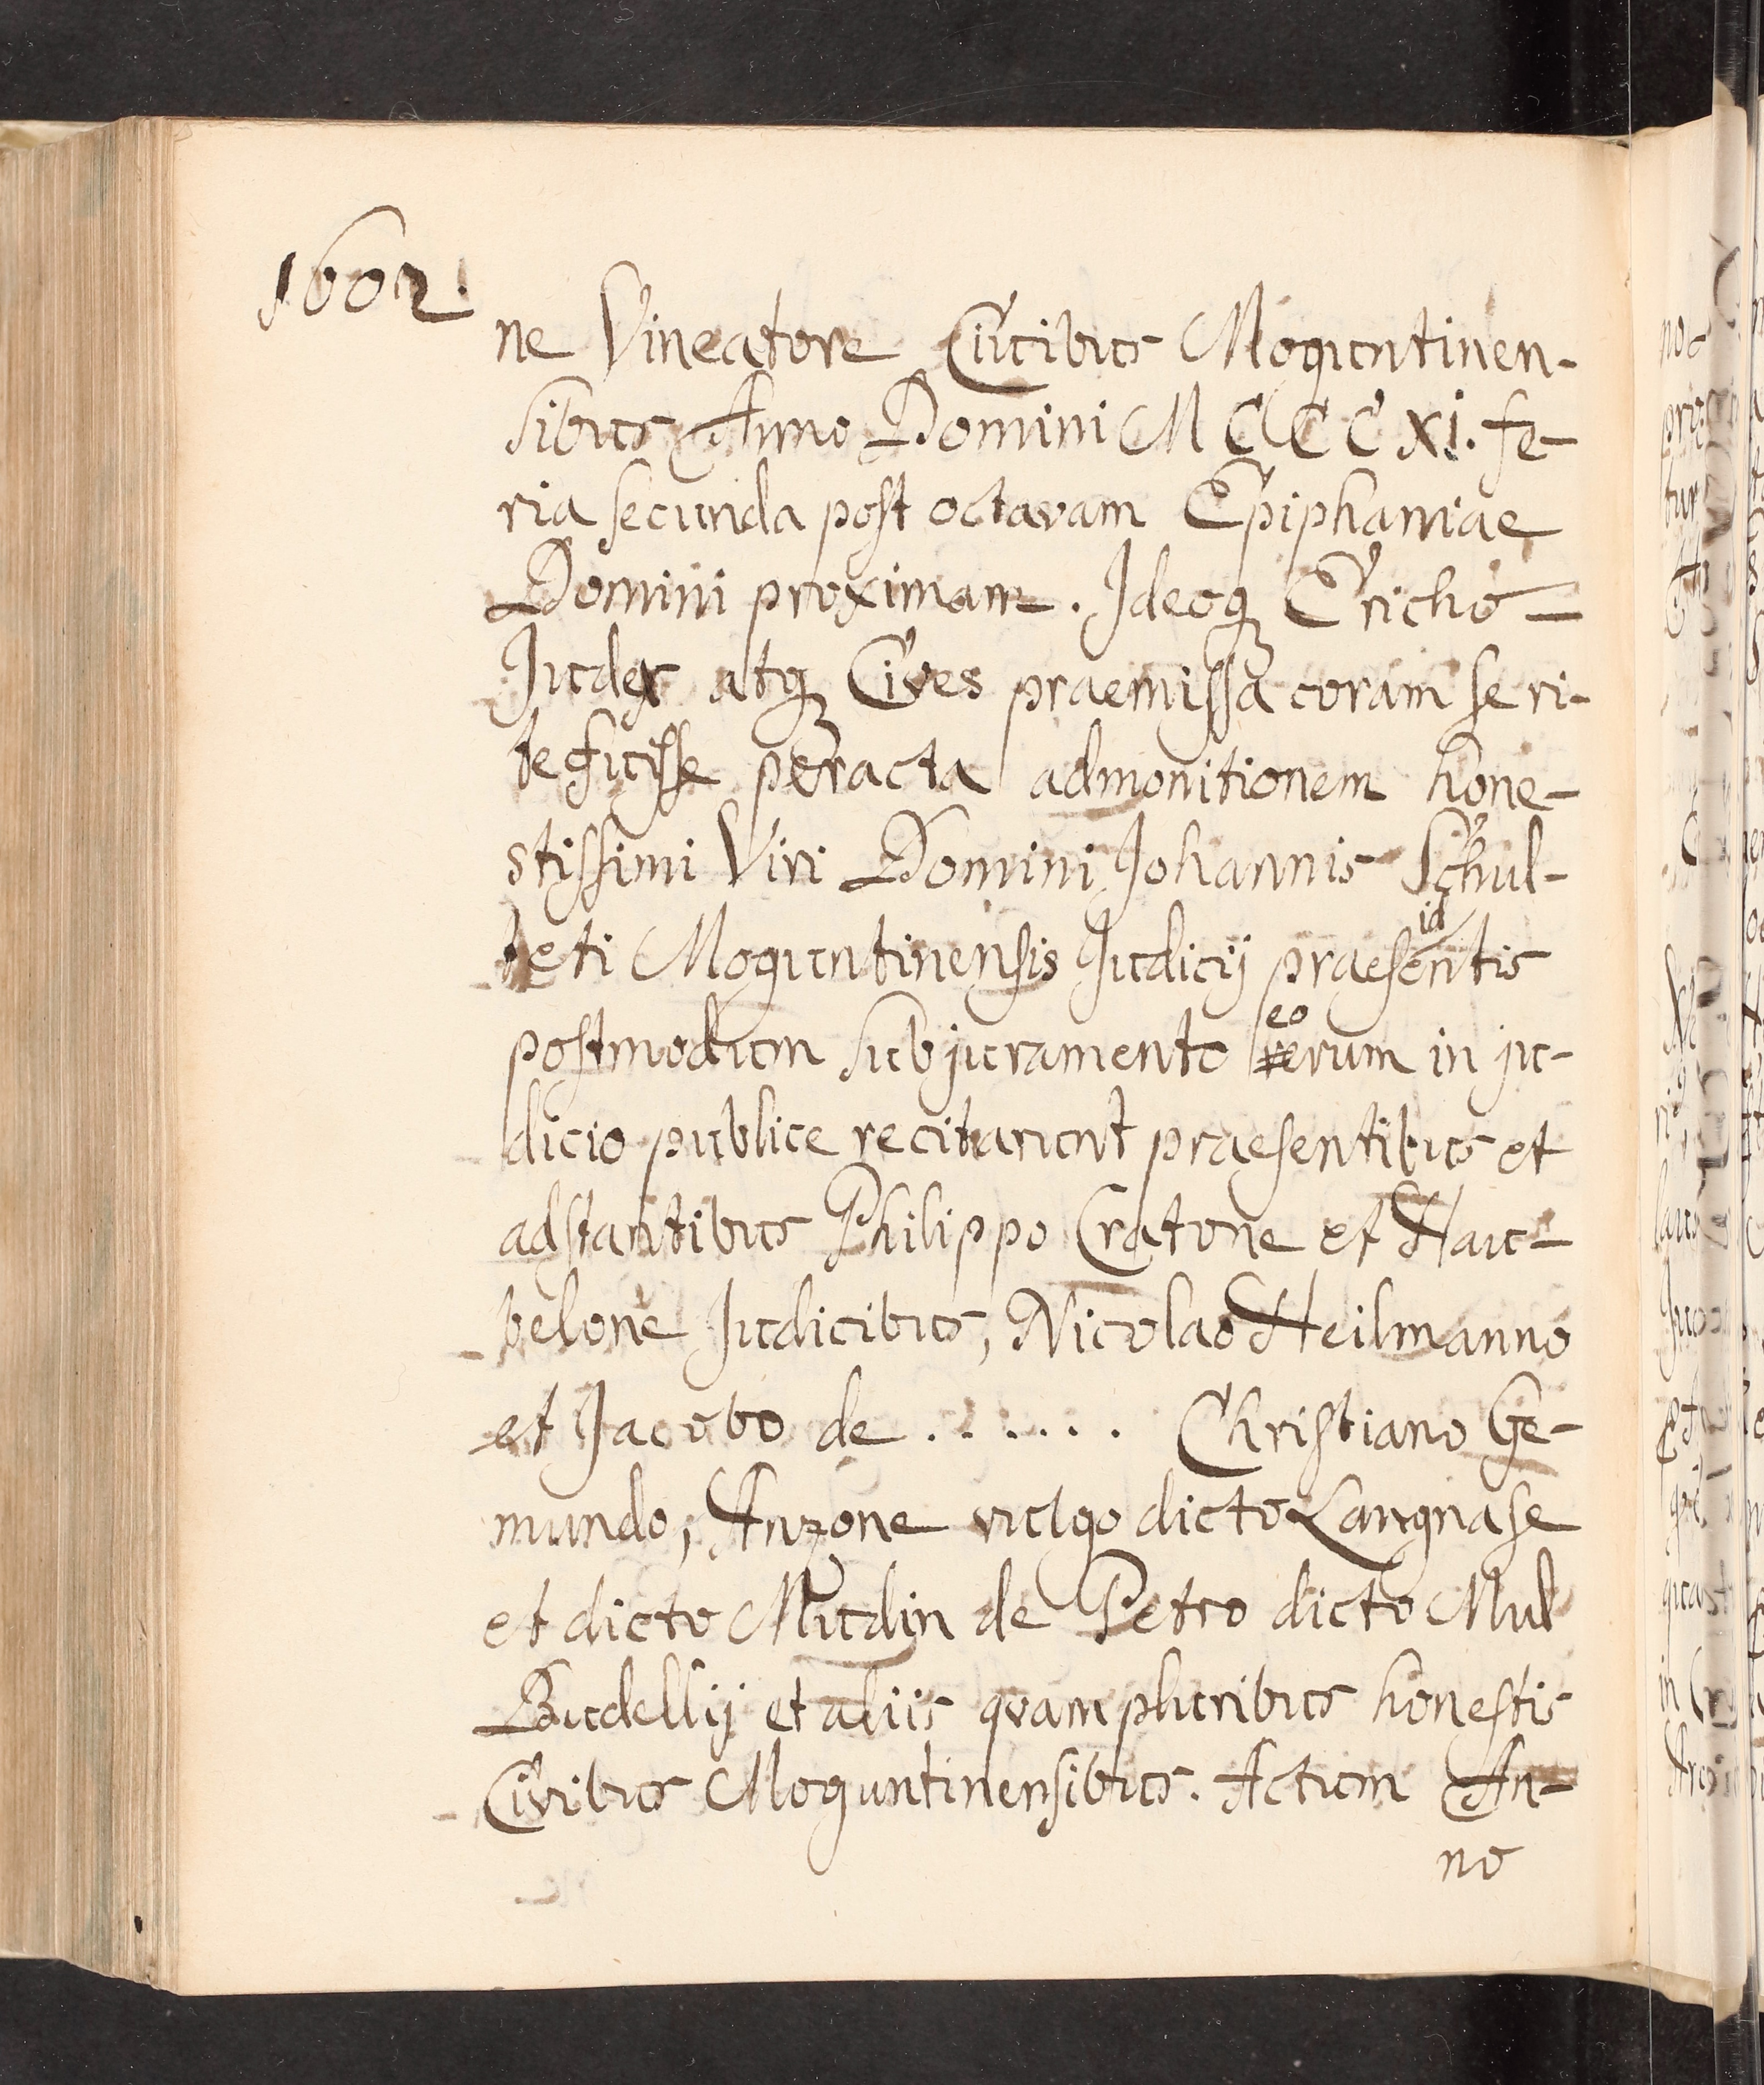 1602.
ne Vineatore Ciuibus Moguntinen-
sibus Anno Domini MCCCXI. fe-
ria secunda post octavam Epiphaniae
Domini proximam. Ideoq Ericho
Judex atq Cives praemissa coram se ri-
te fuisse peracta admonitionem hone-
stissimi Viri Domini Johannis Schul-
id
teti Moguntinensis Judicij praesentis
eo
postmodum sub juramento rerum in ju-
dicio publice recitarunt praesentibus et
adstantibus Philippo Cratone et Hau-
belone Judicibus, Nicolao Heilmanno
et Jacobo de ...... Christiano Ge-
mundo, Anzone vulgo dicto Langnase
et dicto Mudin de Petro dicto Mul
Budellij et aliis quam pluribus honestis
Civibus Moguntinensibus. Actum An-
no